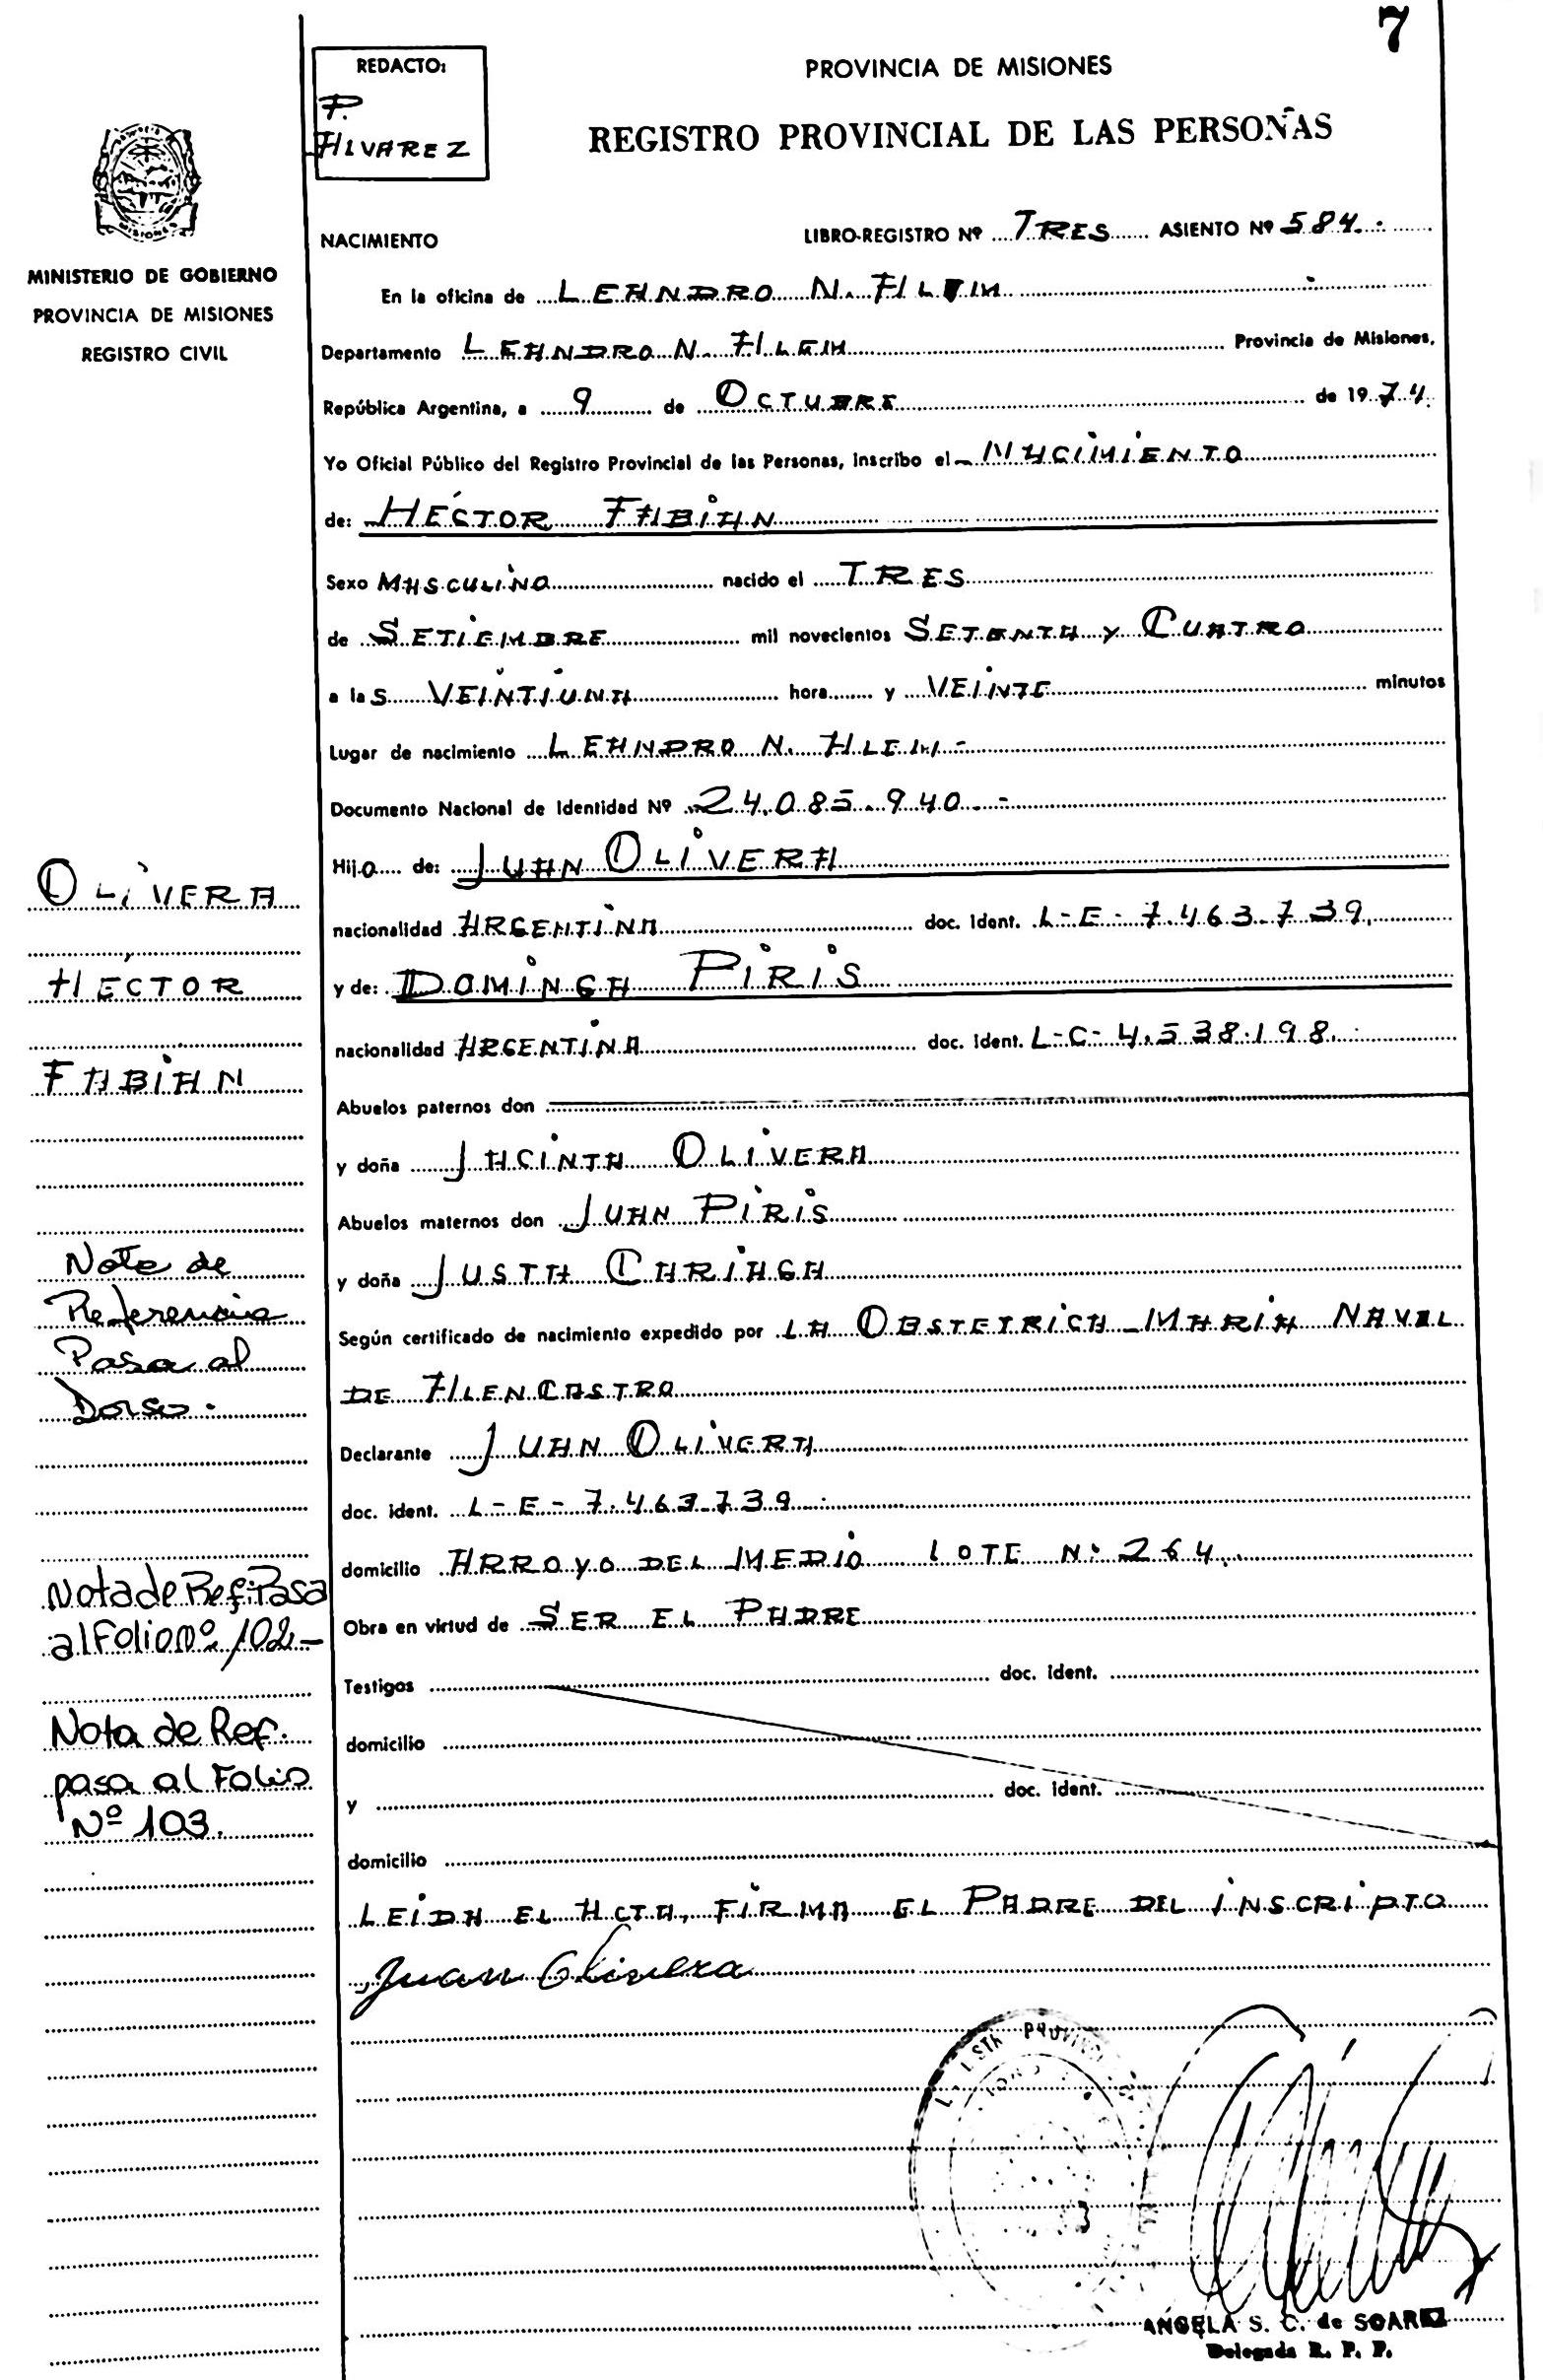 7
REDACTO:
P.
ALVAREZ
PROVINCIA DE MISIONES
REGISTRO PROVINCIAL DE LAS PERSONAS
MINISTERIO DE GOBIERNO
PROVINCIA DE MISIONES
REGISTRO CIVIL
NACIMIENTO
LIBRO-REGISTRO Nº TRES ASIENTO Nº 584.-
En la oficina de LEANDRO N. ALEM
Departamento LEANDRO N. ALEM Provincia de Misiones,
República Argentina, a 9 de OCTUBRE de 1974.
Yo Oficial Público del Registro Provincial de las Personas, inscribo el NACIMIENTO
de: HÉCTOR FABIAN
Sexo MASCULINO nacido el TRES
de SETIEMBRE mil novecientos SETENTA Y CUATRO
a las VEINTIUNA hora y VEINTE minutos
Lugar de nacimiento LEANDRO N. ALEM-
Documento Nacional de Identidad Nº 24.085.940.-
Hijo de: JUAN OLIVERA
nacionalidad ARGENTINA doc. ident. L-E-7.463.739.
y de: DOMINGA PIRIS
nacionalidad ARGENTINA doc. ident. L-C-4.538.198.
Abuelos paternos don
y doña JACINTA OLIVERA
Abuelos maternos don JUAN PIRIS
y doña JUSTA CARIAGA
Según certificado de nacimiento expedido por LA OBSTETRICA MARIA NAVEL
DE ALENCASTRO
Declarante JUAN OLIVERA
doc. ident. L-E-7.463.739.
domicilio ARROYO DEL MEDIO LOTE Nº 264.
Obra en virtud de SER EL PADRE
Testigos doc. ident.
domicilio
y doc. ident.
domicilio
LEIDA EL ACTA, FIRMA EL PADRE DEL INSCRIPTO
Juan Olivera
OLIVERA
HÉCTOR
FABIAN
Nota de
Referencia
Pasa al
Dorso.
Nota de Ref. Pasa
al Folio nº 102.-
Nota de Ref.
pasa al Folio
Nº 103.
ANGELA S. C. de SOAREZ
Delegada R. P. P.